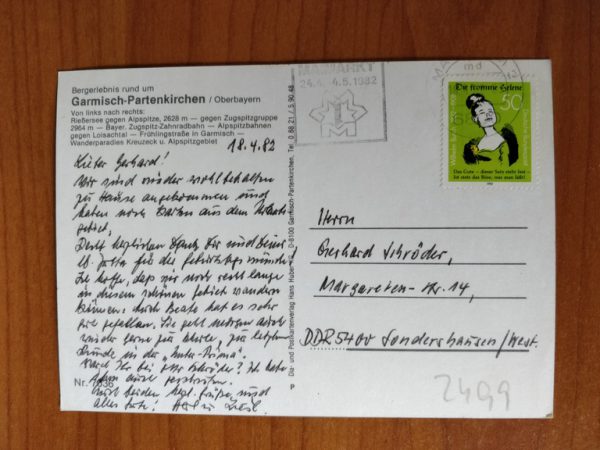 Bergerlebnis rund um
Garmisch-Partenkirchen / Oberbayern
Von links nach rechts:
Rießersee gegen Alpspitze, 2628 m — gegen Zugspitzgruppe
2964 m — Bayer. Zugspitz-Zahnradbahn — Alpspitzbahnen
gegen Loisachtal — Frühlingstraße in Garmisch —
Wanderparadies Kreuzeck u. Alpspitzgebiet
18.4.82
Lieber Gerhard!
Wir sind wieder wohlbehalten
zu Hause angekommen und
haben noch Karten aus dem
gebiet.
Dank Dir und Deiner
lb. Jutta für die
Ich hoffe, daß wir noch recht lange
in diesem schönen Gebiet wandern
können. Auch Beate hat es sehr
gut gefallen. Sie geht morgen auch
wieder gerne zur Schule, zur letzten
Runde in der "Unter-Prima".
Wart Ihr bei Schröder? Ich habe
ihm
Euch beiden herzl. Grüße und
alles Gute!
Nr. 1636
Dia- und Postkartenverlag Hans Huber, D-8100 Garmisch-Partenkirchen, Tel. 0 88 21 / 5 90 48
P
MAIMARKT
24.4. - 4.5.1982
M
md
Die fromme Helene
50
Das Gute — dieser Satz steht fest —
ist stets das Böse, was man läßt!
Herrn
Gerhard Schröder,
Margareten-Str. 14,
DDR 5400 Sondershausen/West.
2499